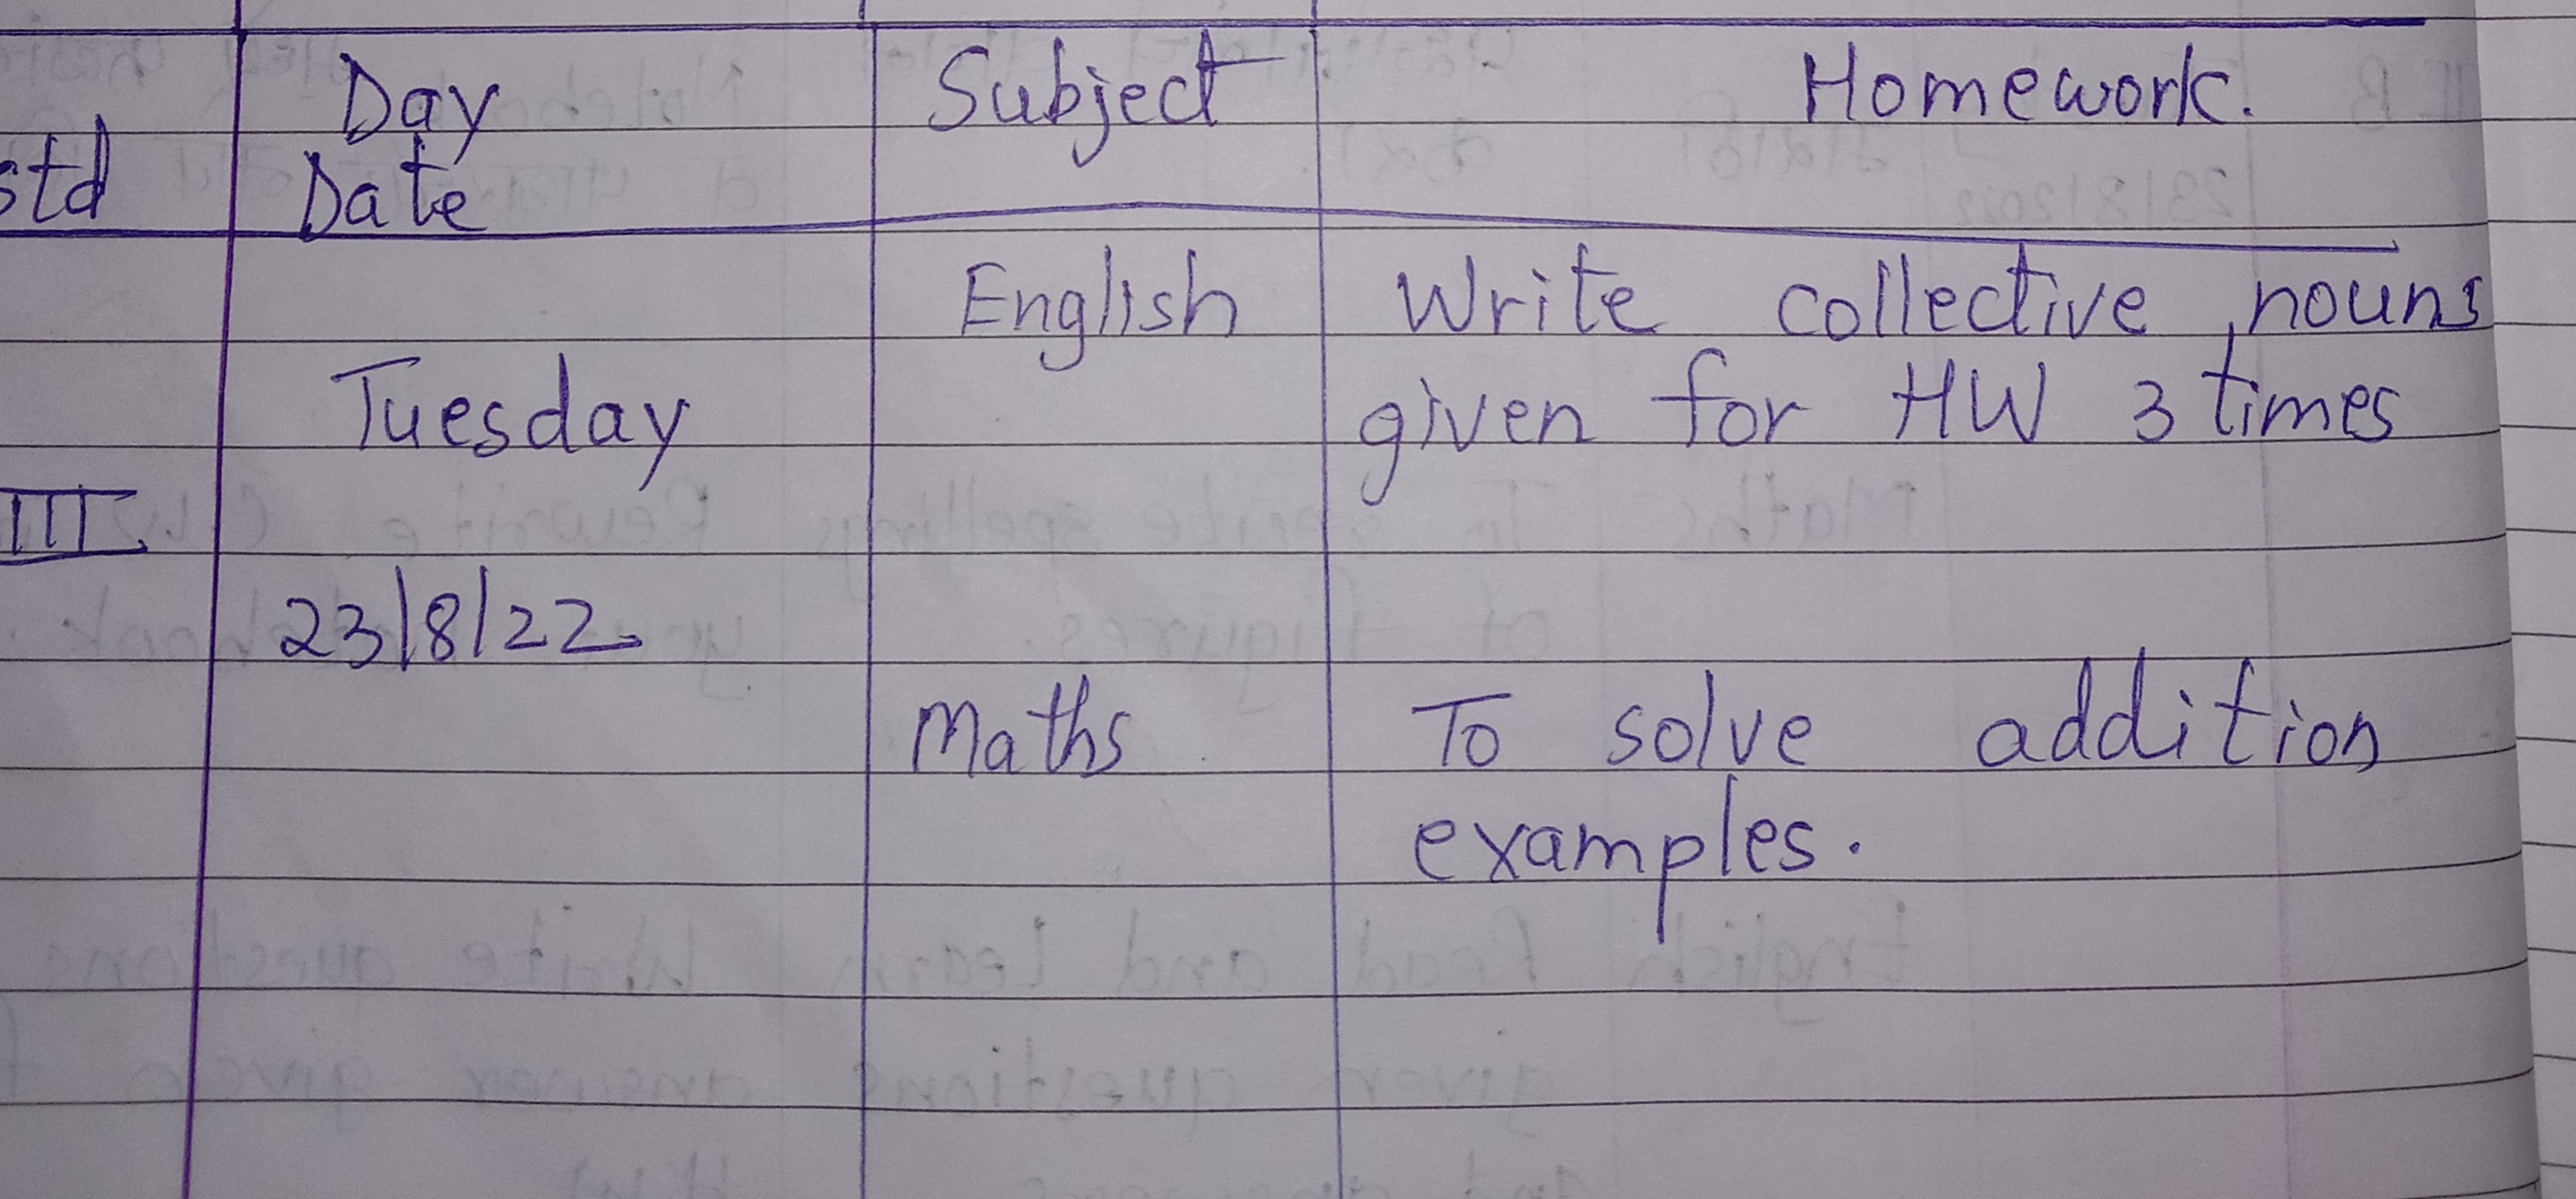 Day Subject Homework.
std Date
English Write collective nouns
Tuesday given for HW 3 times
III
23/8/22
Maths To solve addition
examples.